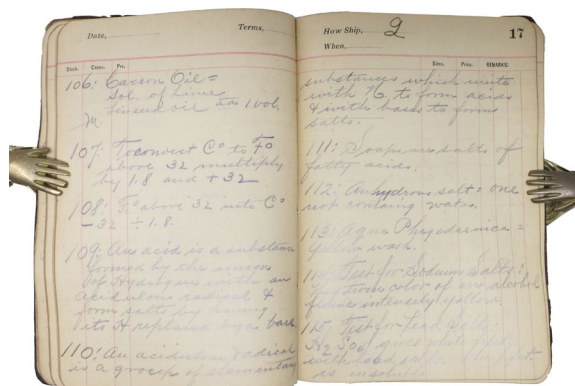 Date,
Terms,
106: Carron Oil =
Sol. of Lime
Linseed oil āā 1 vol.
M.
107: To convert C° to F°
above 32 multiply
by 1.8 and + 32
108: F° above 32 into C°
- 32 ÷ 1.8.
109: An acid is a substance
formed by the union
of Hydrogen with an
acidulous radical &
form salts by having
its H replaced by a base.
110: An acidulous radical
is a group of elementary
How Ship, 2
17
When,
Sizes. Price. REMARKS.
substances which unite
with H. to form acids
& with bases to form
salts.
111: Soaps are salts of
fatty acids.
112: Anhydrous salt = one
not containing water.
113: Aqua Phagedaenica =
Yellow wash.
114: Test for Sodium Salts:
color of an alcohol
flame intensely yellow.
115: Test for Lead Salts:
H2SO4 gives white ppt.
with lead
is insoluble